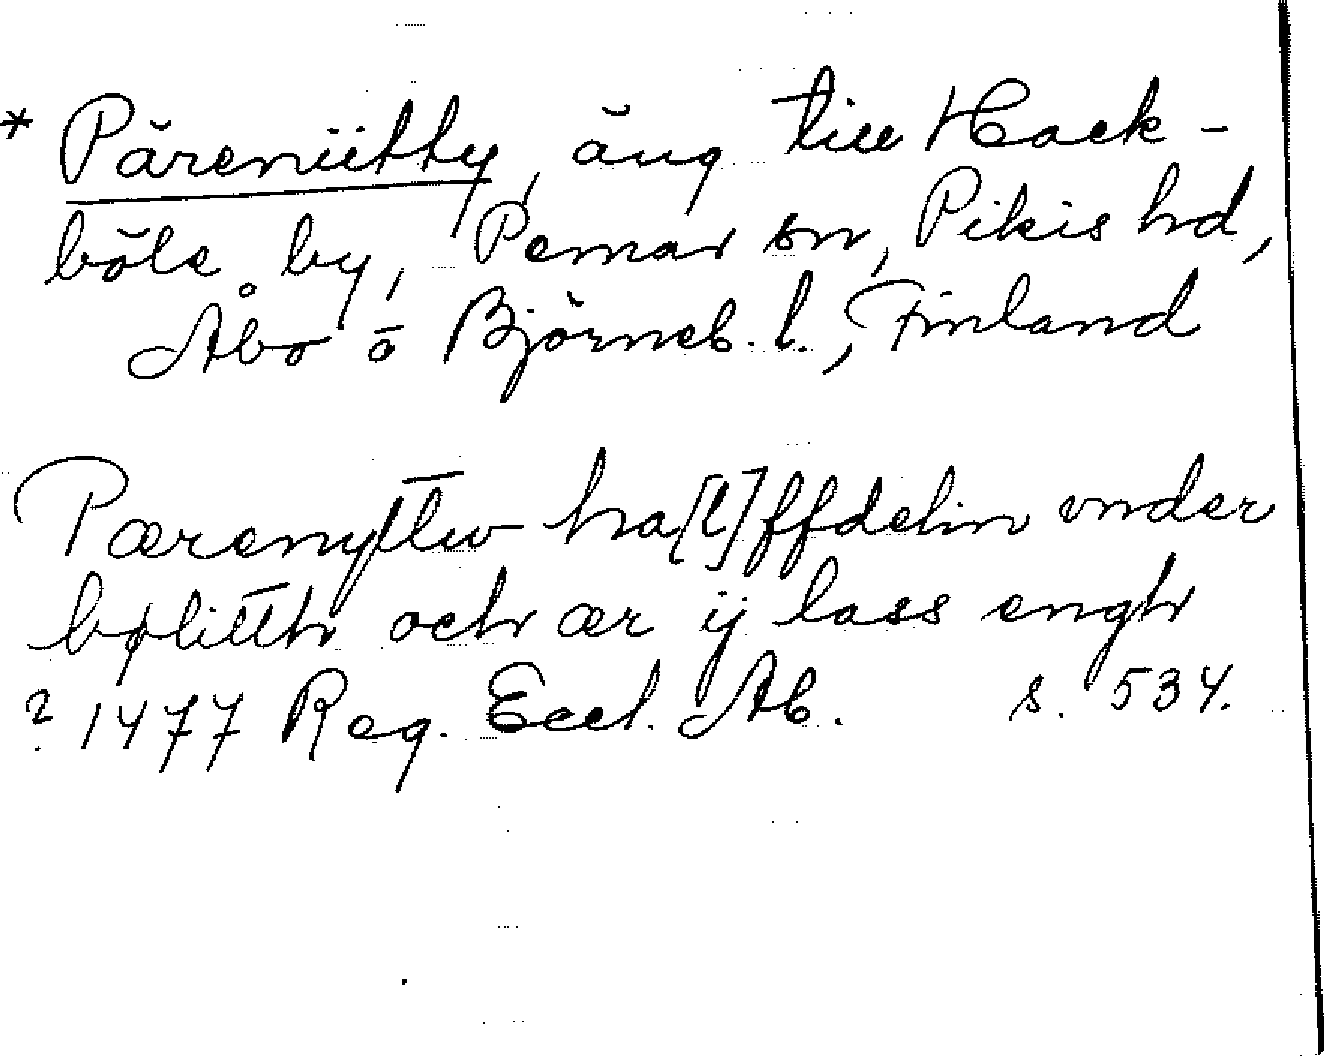 * Päreniitty, äng till Hack-
böle by, Pemar sn, Pikis hd,
Åbo o Björneb. l., Finland
Pærenyttw ha[l]ffdelin vnder
bølitth och ær ij lass engh
? 1477 Reg. Eccl. Ab. s. 534.